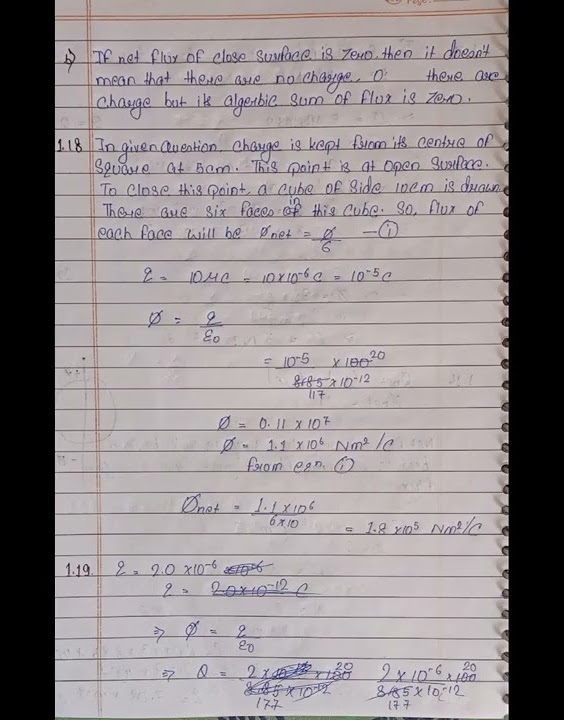 b) If net flux of close surface is zero, then it doesn't
mean that there are no charge. O there are
charge but its algerbic sum of flux is zero.
1.18 In given question, charge is kept from its centre of
square at 5cm. This point is at open surface.
To close this point, a cube of side 10cm is drawn
There are six faces of in this cube. So, flux of
each face will be Ønet = Ø/6 —①
q = 10μC = 10×10⁻⁶C = 10⁻⁵C
Ø = q/ε₀
= 10⁻⁵ × 100 20 / 8.85 × 10⁻¹² 117
Ø = 0.11 × 10⁷
Ø = 1.1 × 10⁶ Nm²/C
from eqn. ①
Ønet = 1.1 × 10⁶ / 6×10 = 1.8 × 10⁵ Nm²/C
1.19. q = 2.0 × 10⁻⁶ ×10⁻⁶
q = 2.0×10⁻¹² C
⇒ Ø = q/ε₀
⇒ Q = 2×10⁻¹² × 100 20 / 8.85 × 10⁻¹² 177 2×10⁻⁶ × 100 20 / 8.85 × 10⁻¹² 177